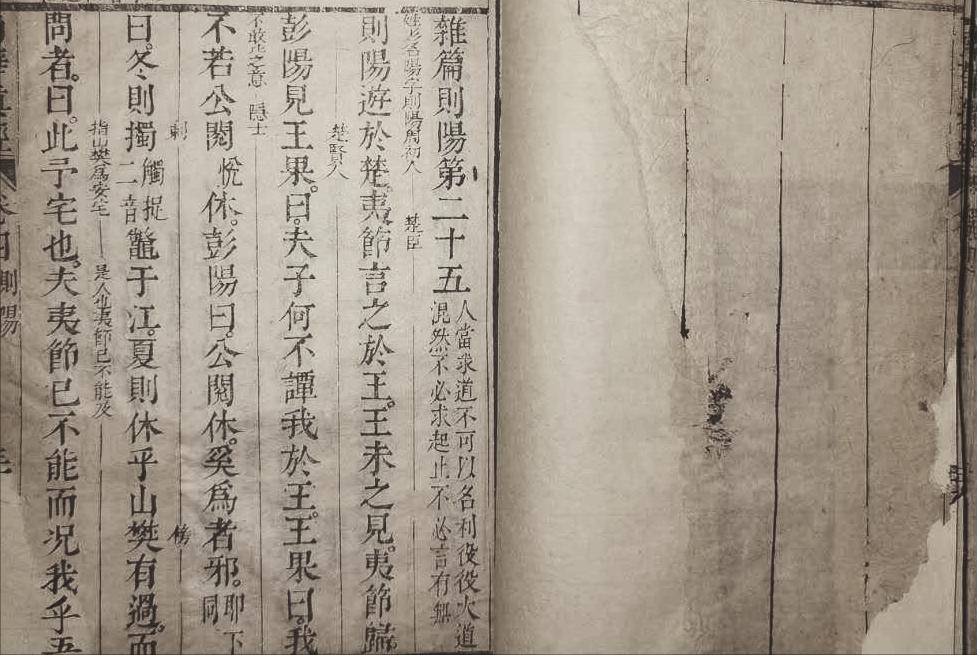 雜篇則陽第二十五 人當求道不可以名利役役大道混然不必求起止不必言有無
姓彭名陽字則陽周初人 楚臣
則陽遊於楚。夷節言之於王。王未之見。夷節歸。
楚賢人
彭陽見王果。曰。夫子何不譚我於王。王果曰。我
不敢比之意 隱士
不若公閱 悅 休。彭陽曰。公閱休。奚為者邪。耶下同
刺 傍
曰。冬則擉 觸捉二音 鼈于江。夏則休乎山樊有過。而
指山樊為安宅 是人也夷節已不能及
問者。曰。此予宅也。夫夷節已不能而况我乎五
則陽